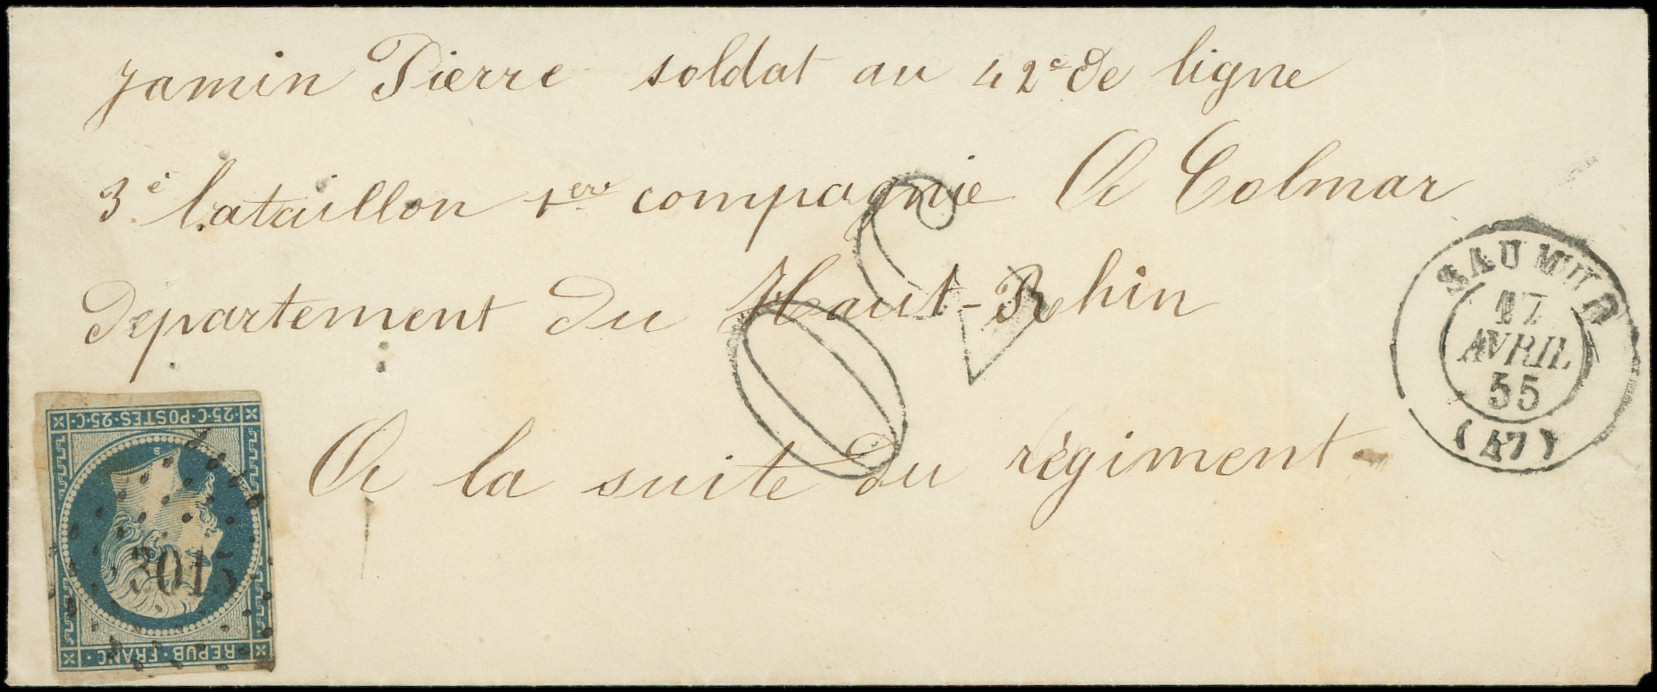 Jamin Pierre soldat au 42e de ligne
3e bataillon 1ere compagnie A Colmar
departement du Haut-Rhin
A la suite du régiment
SAUMUR
17
AVRIL
55
(47)
25·C·POSTES·25·C
3015
REPUB·FRANC